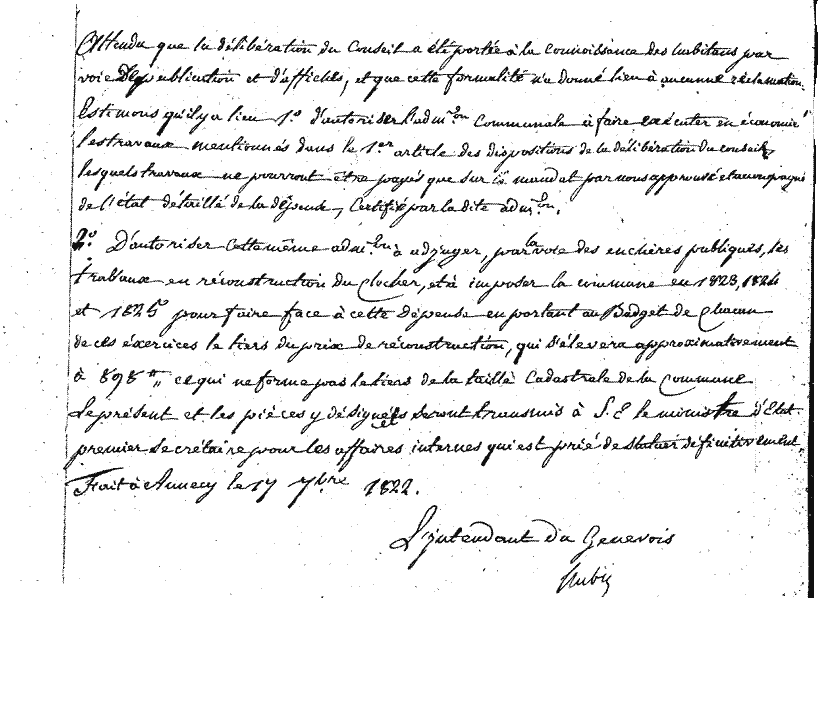 Attendu que la délibération du Conseil a été portée à la connoissance des habitans par
voie de publication et d'affiches, et que cette formalité n'a donné lieu à aucune réclamation.
Estimons qu'il y a lieu 1.o d'autoriser l'adm.on Communale à faire exécuter en économie
les travaux mentionnés dans le 1.er article des dispositions de la délibération du conseil,
lesquels travaux ne pourront être payés que sur le mandat par nous approuvé et accompagné
de l'état détaillé de la dépense, certifié par la dite adm.on.
2.o D'autoriser cette même adm.on à adjuger, par la voie des enchères publiques, les
travaux en réconstruction du Clocher, et à imposer la commune en 1823, 1824
et 1825 pour faire face à cette dépense en portant au Budget de Chacun
de ces éxercices le tiers du prix de réconstruction, qui s'élevera approximativement
à 898 " ce qui ne forme pas le tiers de la taille Cadastrale de la Commune
Le présent et les pièces y désignées seront transmis à S. E le ministre d'Etat
premier Secrétaire pour les affaires internes qui est prié de statuer définitivement.
Fait à Annecy le 17 7bre 1822.
L'jntendant du Genevois